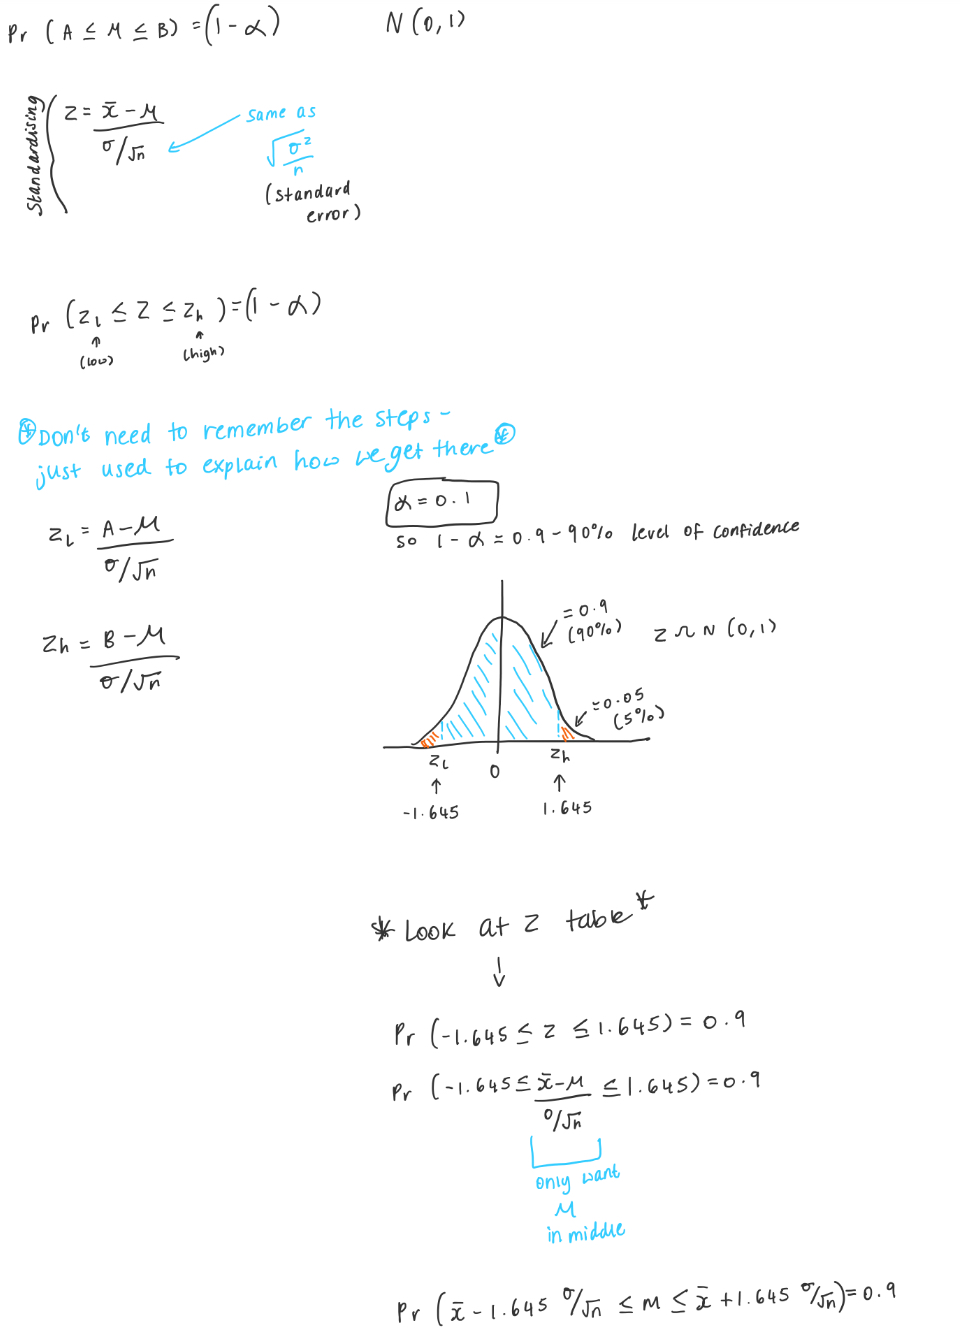 Pr (A ≤ μ ≤ B) = (1 - α)
N (0, 1)
Standardising
z = x̄ - μ
σ/√n
same as
√σ²
n
(standard
error)
Pr (z_l ≤ z ≤ z_h) = (1 - α)
(low)
(high)
Don't need to remember the steps -
just used to explain how we get there
z_l = A - μ
σ/√n
z_h = B - μ
σ/√n
α = 0.1
so 1 - α = 0.9 - 90% level of confidence
= 0.9
(90%)
z ~ N (0, 1)
= 0.05
(5%)
z_l
0
z_h
-1.645
1.645
* Look at z table *
Pr (-1.645 ≤ z ≤ 1.645) = 0.9
Pr (-1.645 ≤ x̄ - μ ≤ 1.645) = 0.9
σ/√n
only want
μ
in middle
Pr (x̄ - 1.645 σ/√n ≤ μ ≤ x̄ + 1.645 σ/√n) = 0.9